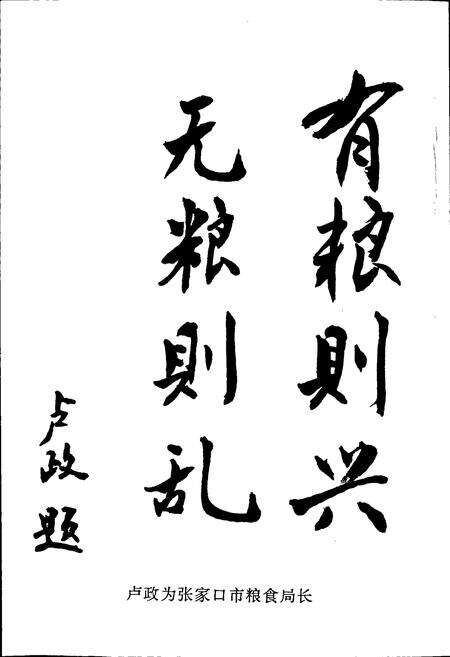 有粮则兴
无粮则乱
卢政题
卢政为张家口市粮食局长